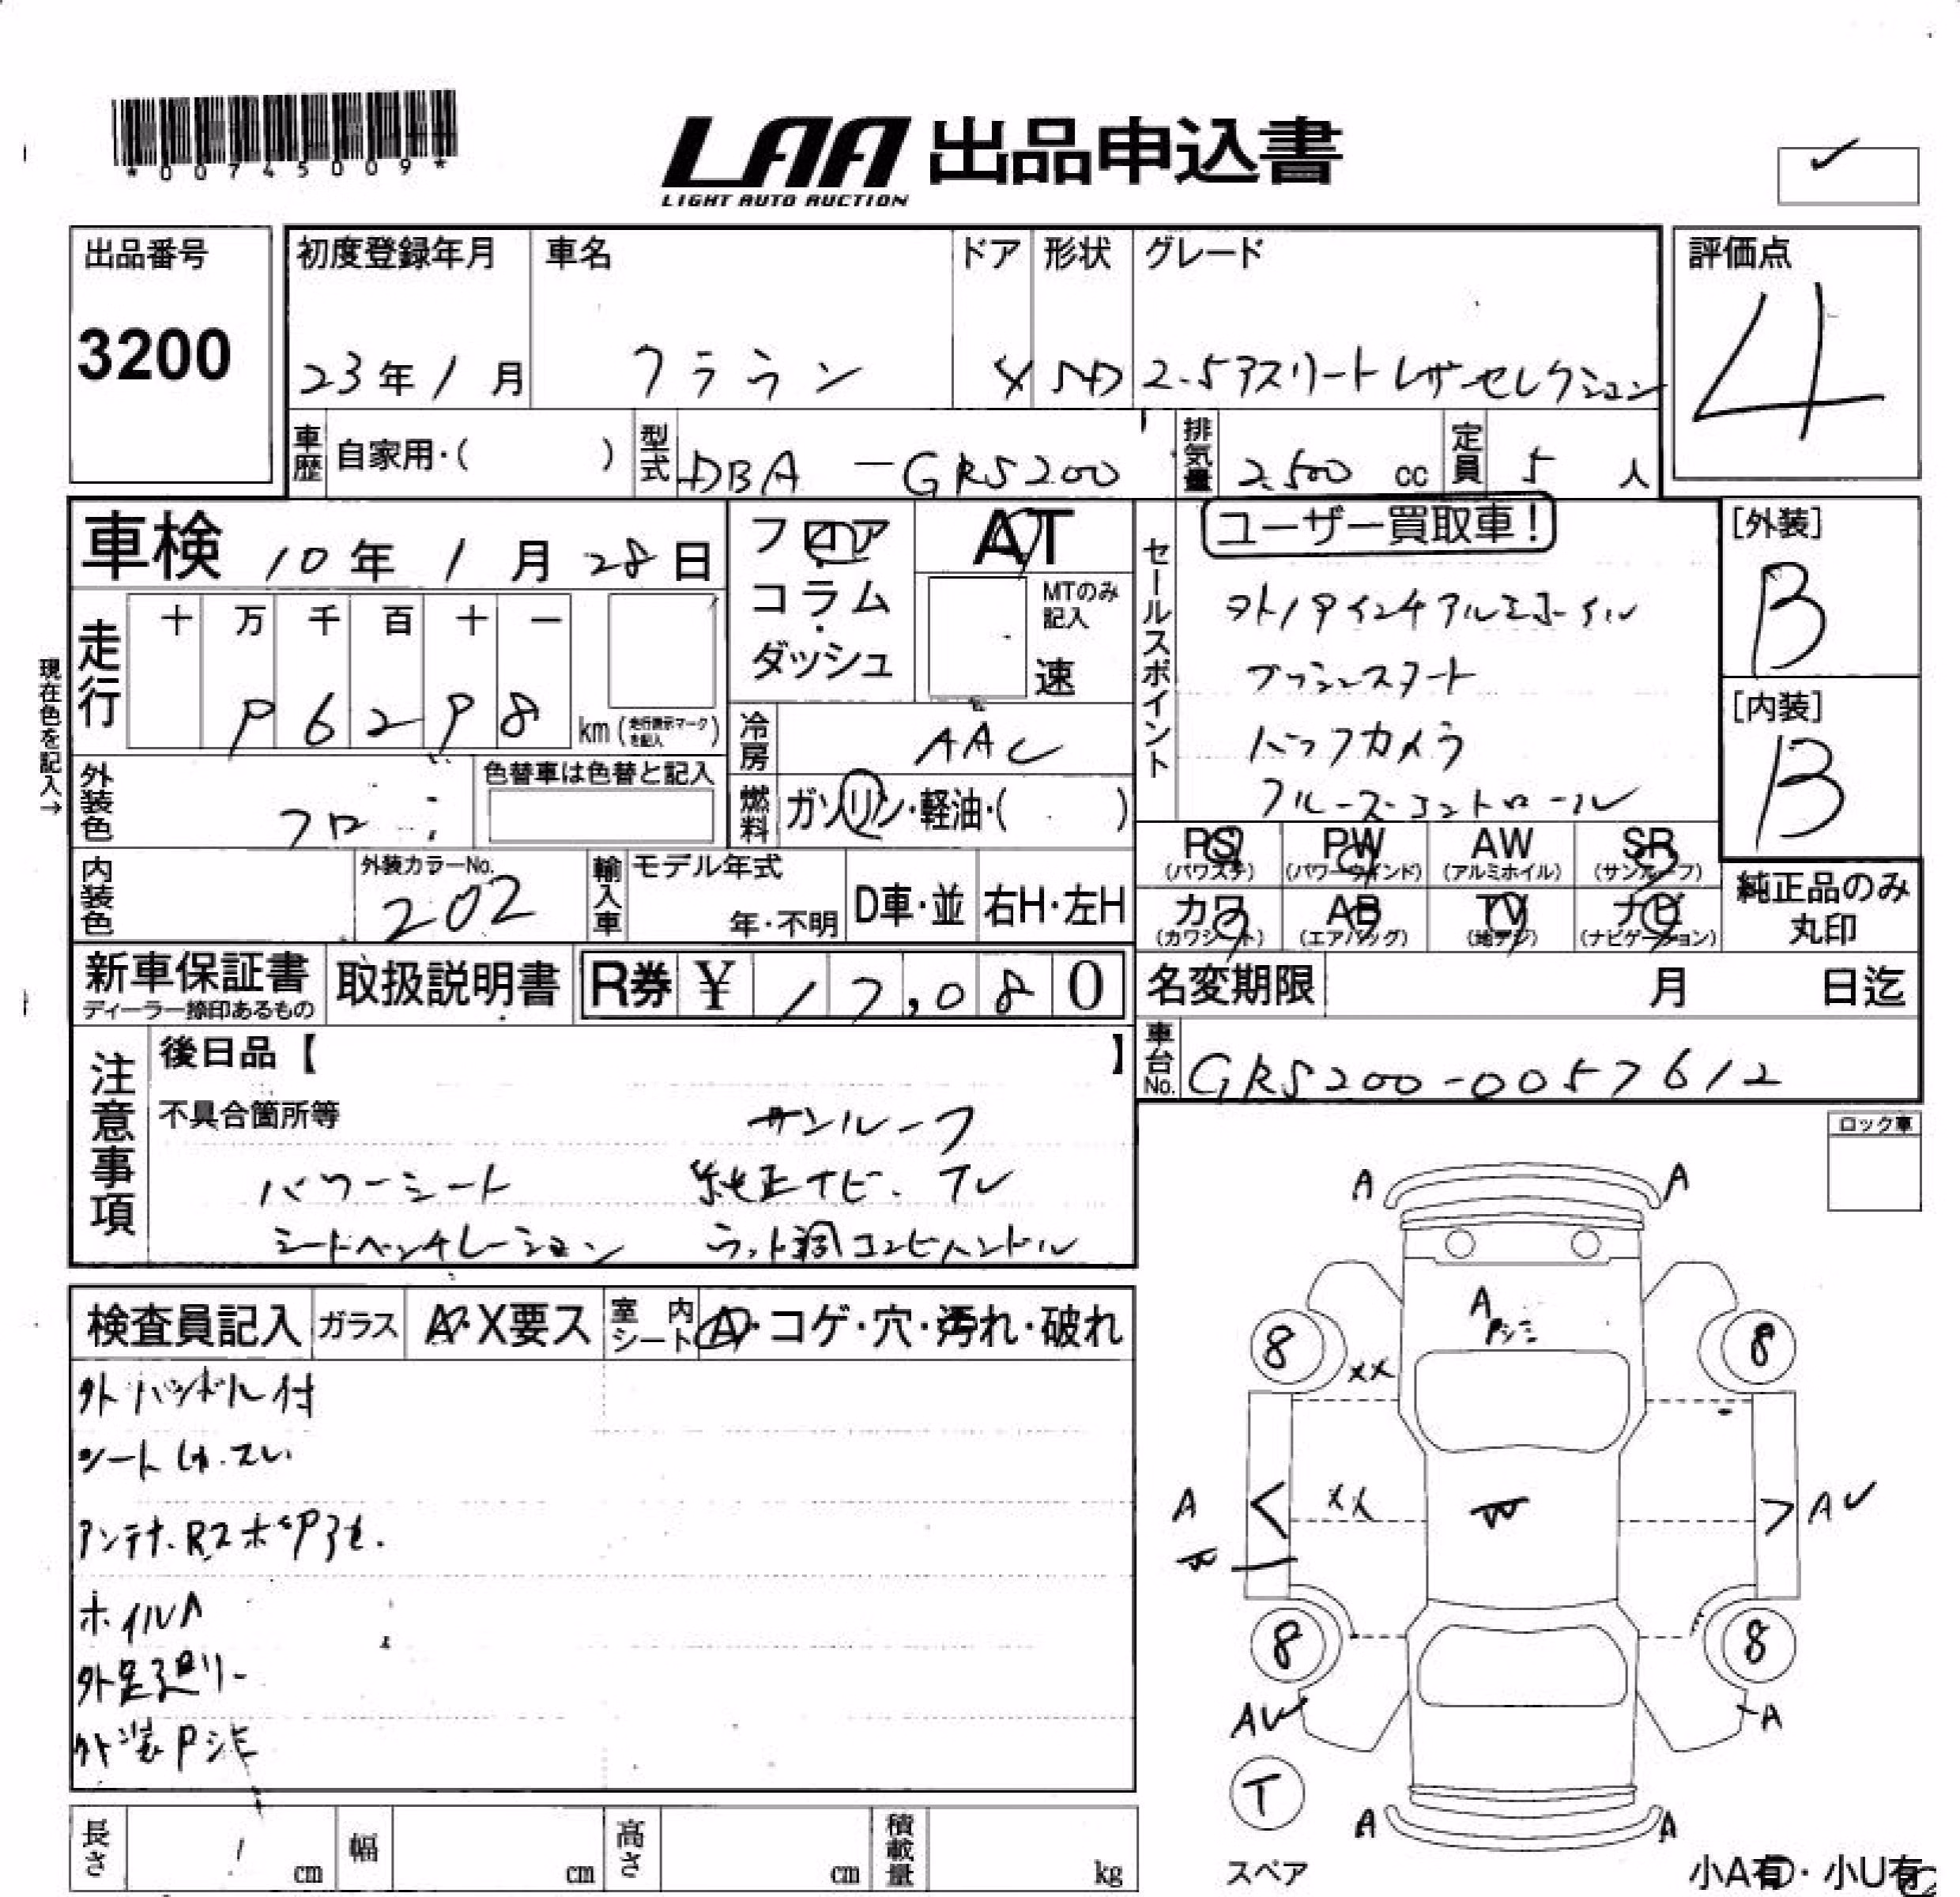 *00745009*
LAA 出品申込書
LIGHT AUTO AUCTION
出品番号
3200
初度登録年月 車名 ドア 形状 グレード
23年1月 クラウン 4 SD 2.5アスリートレザーセレクション
評価点
4
車歴 自家用・( ) 型式 DBA-GRS200 排気量 2500 cc 定員 5 人
車検 10年1月28日
フロア
コラム
ダッシュ
AT
MTのみ記入
速
走行 十 万 千 百 十 一
96298 km(走行表示マークを記入)
現在色を記入→
外装色 クロ
色替車は色替と記入
冷房 AAC
燃料 ガソリン・軽油・( )
セールスポイント
ユーザー買取車!
外/19インチアルミホイル
プッシュスタート
バックカメラ
クルーズコントロール
[外装]
B
[内装]
B
内装色
外装カラーNo.
202
輸入車 モデル年式
年・不明 D車・並 右H・左H
PS PW AW SR
(パワステ) (パワーウインド) (アルミホイル) (サンルーフ)
カワ AB TV ナビ
(カワシート) (エアバッグ) (地デジ) (ナビゲーション)
純正品のみ
丸印
新車保証書
ディーラー捺印あるもの
取扱説明書
R券 ¥ 17,080
名変期限 月 日迄
車台No. GRS200-0057612
注意事項
後日品【 】
不具合箇所等
サンルーフ
パワーシート 純正ナビ.TV
シートベンチレーション ウット調コンビハンドル
ロック車
検査員記入 ガラス A・X要ス 室内シート A・コゲ・穴・汚れ・破れ
外ハンドル付
シートしわ.スレ
ホイルA
A A
A
Pシミ
8 8
XX
A XX W AV
W
8 8
AV A
T
A A
スペア
長さ cm 幅 cm 高さ cm 積載量 kg
小A有・小U有